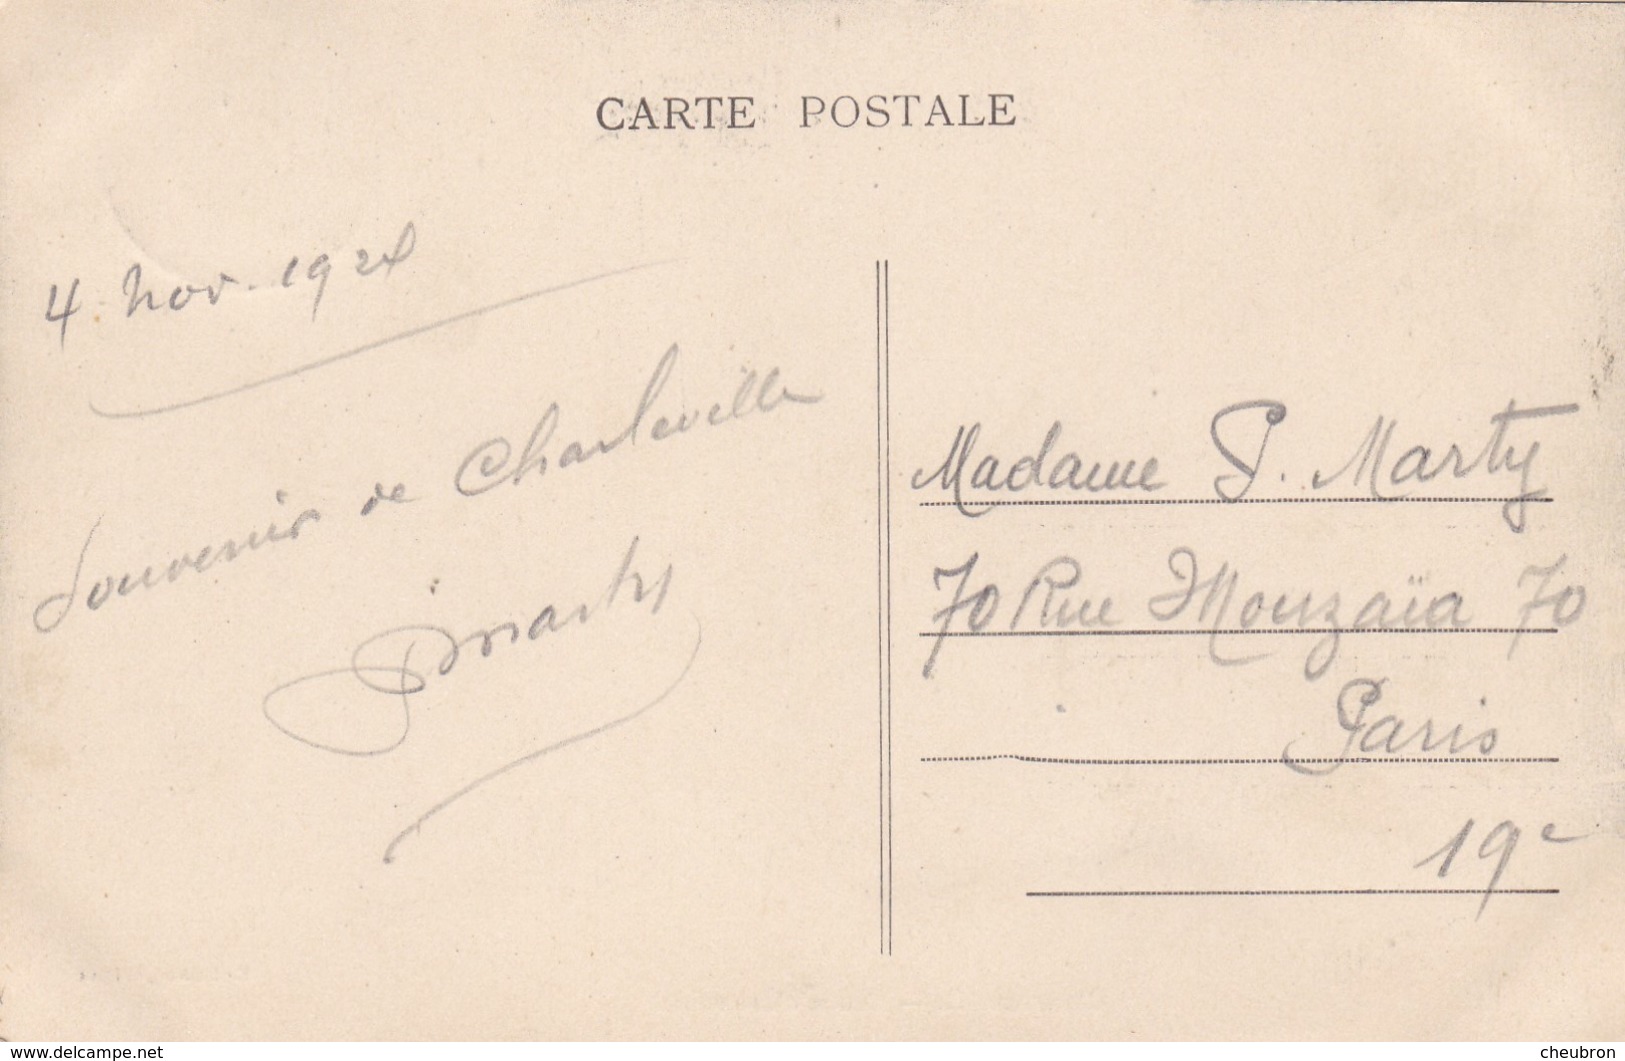 CARTE POSTALE
4 Nov. 192
Souvenir de Charleville
Marty
Madame P. Marty
70 Rue Mouzaïa 70
Paris
19e
www.delcampe.net
cheubron